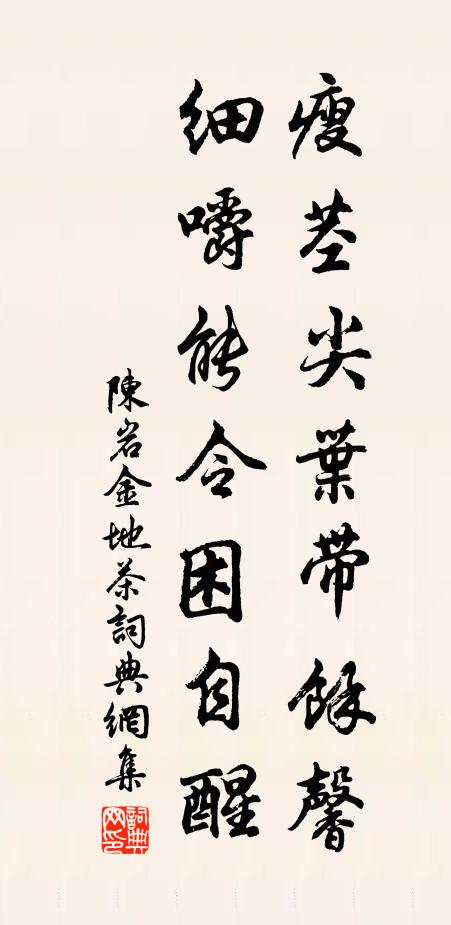 瘦莖尖葉帶餘馨
細嚼能令困自醒
陳岩金地茶詞典網集
詞典網印